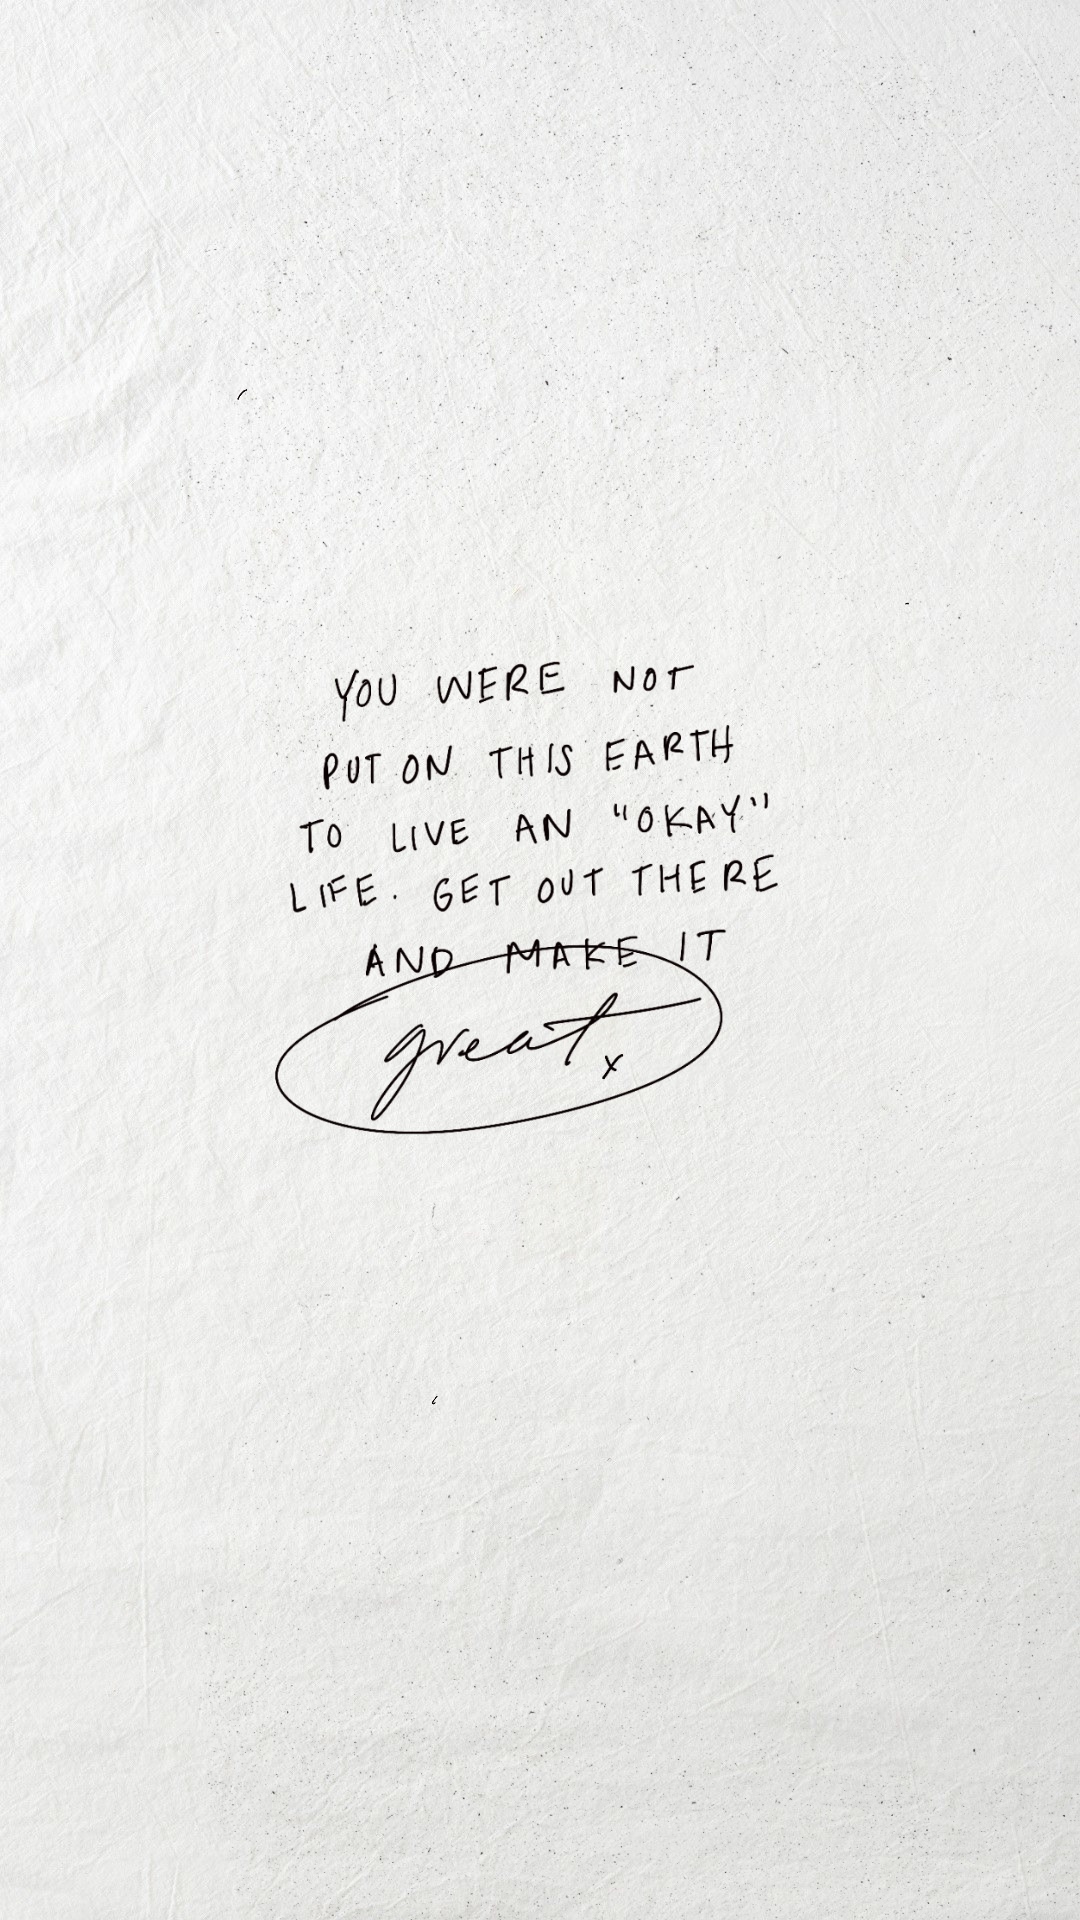 YOU WERE NOT
PUT ON THIS EARTH
TO LIVE AN "OKAY"
LIFE. GET OUT THERE
AND MAKE IT
great x